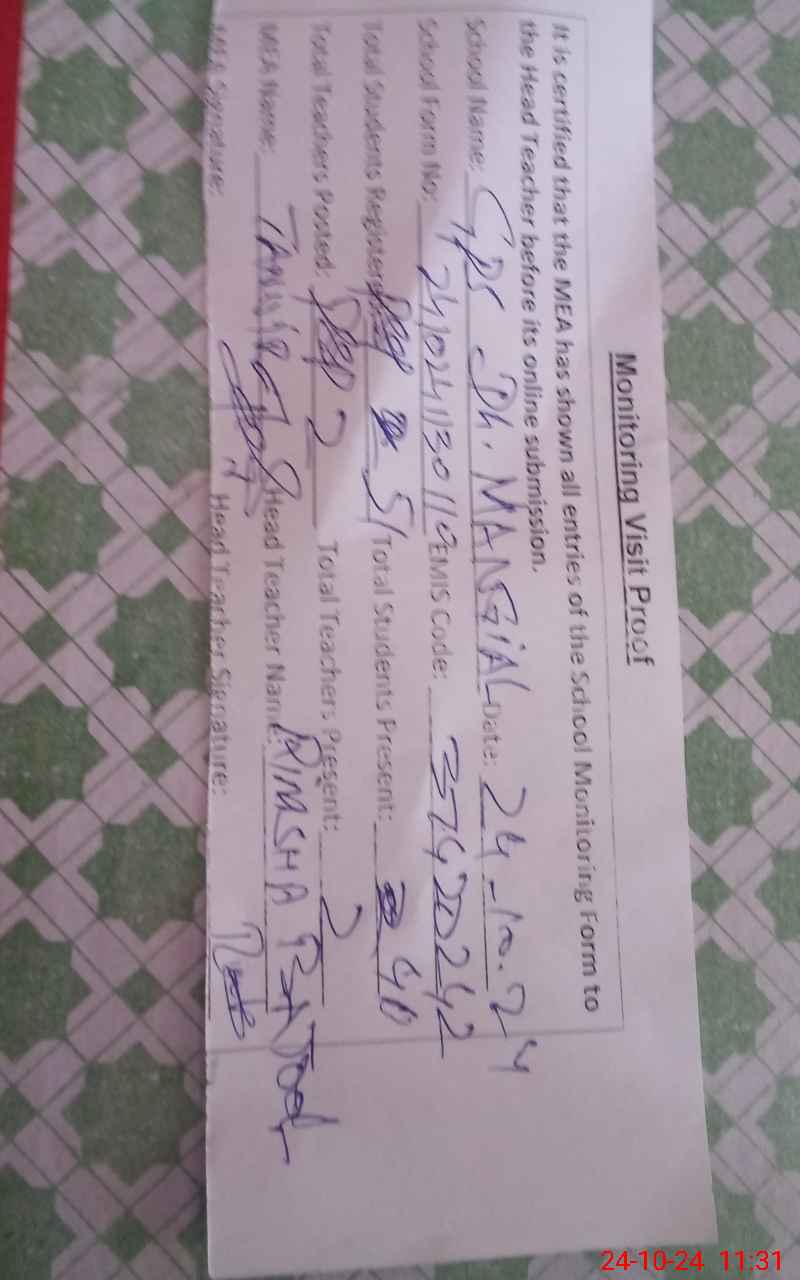 Monitoring Visit Proof
It is certified that the MEA has shown all entries of the School Monitoring Form to
the Head Teacher before its online submission.
School Name: GPS Dh. MANGIAL Date: 24-10.24
School Form No: EMIS Code: 37420242
Total Students Registered 51 Total Students Present: 40
Total Teachers Posted: 2 Total Teachers Present: 2
MEA Name: TANVIR Head Teacher Name: RIMSHA
MEA Signature: Head Teacher Signature:
24-10-24 11:31